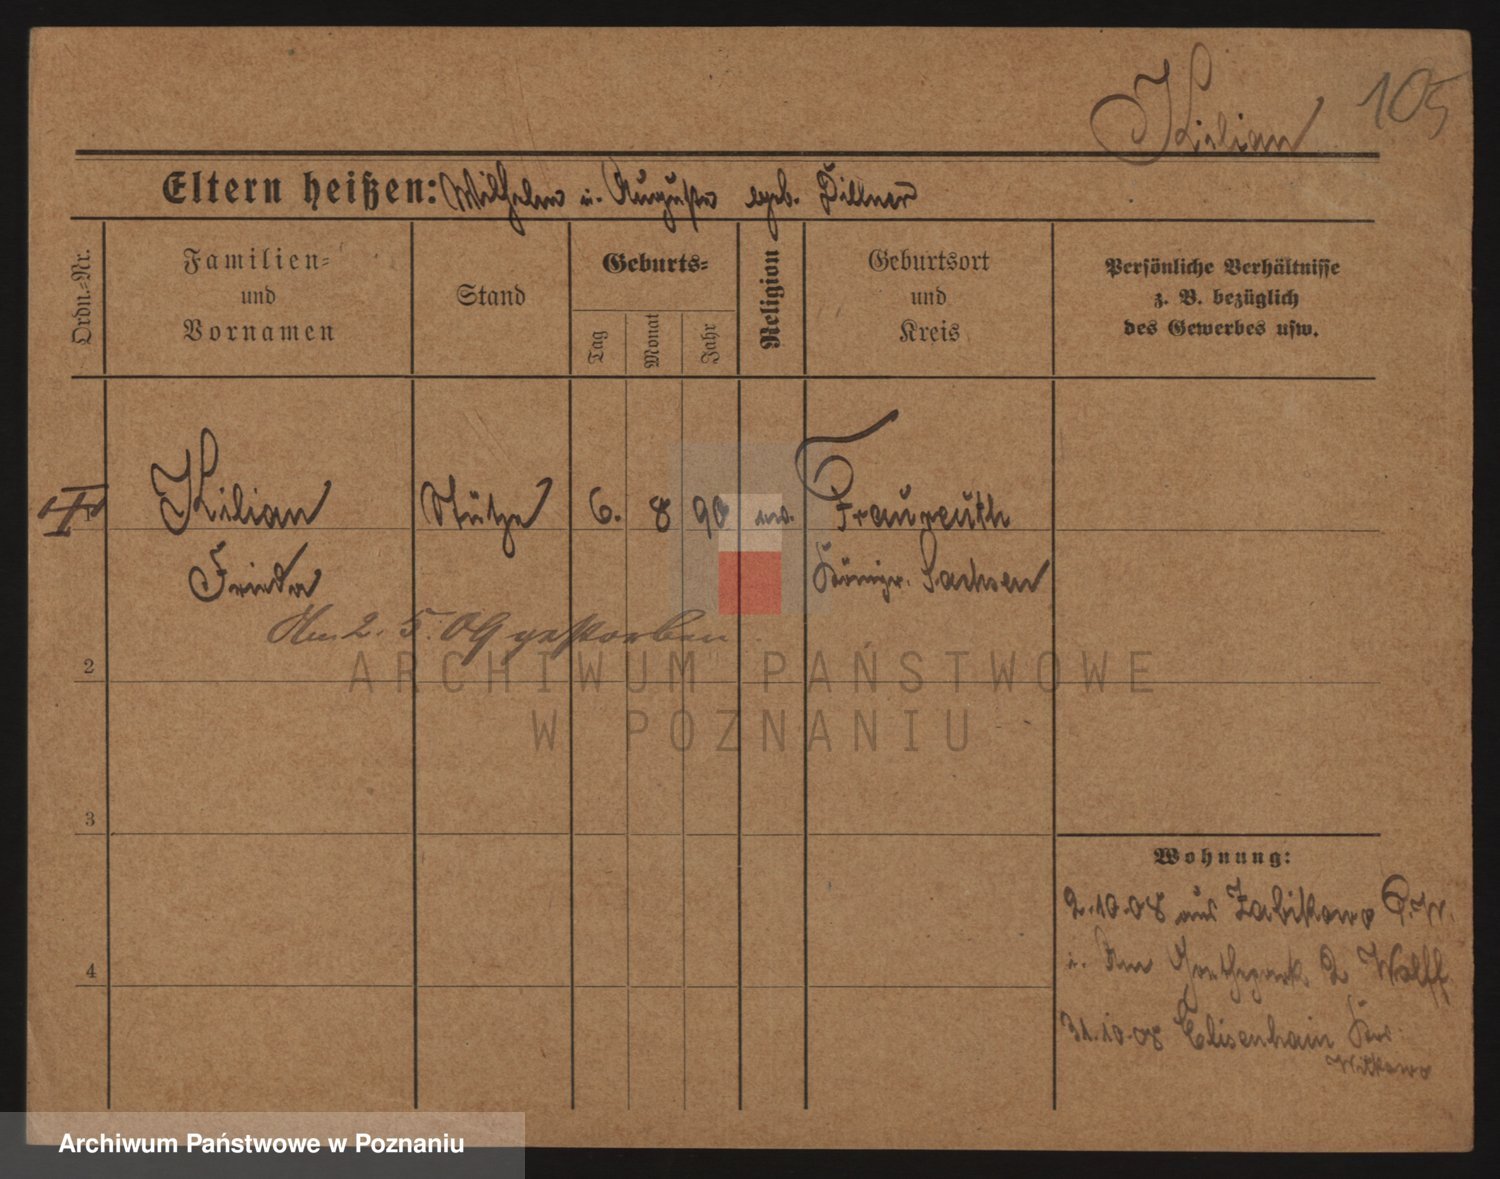 Kilian 105
Eltern heißen: Wilhelm u. Auguste geb. Zillner
Ordn.=Nr.
Familien=
und
Vornamen
Stand
Geburts=
Tag
Monat
Jahr
Religion
Geburtsort
und
Kreis
Persönliche Verhältnisse
z. B. bezüglich
des Gewerbes usw.
1 Kilian Stütze 6. 8 90 Fraureuth
Frieda Königr. Sachsen
Am 2. 5. 09 gestorben.
2
3
4
Wohnung:
2.10.08 aus Zabikowo P.W.
i. Am Goethepark 2 Wolff
31.10.08 Elisenhain Kr.
Witkowo
ARCHIWUM PAŃSTWOWE
W POZNANIU
Archiwum Państwowe w Poznaniu